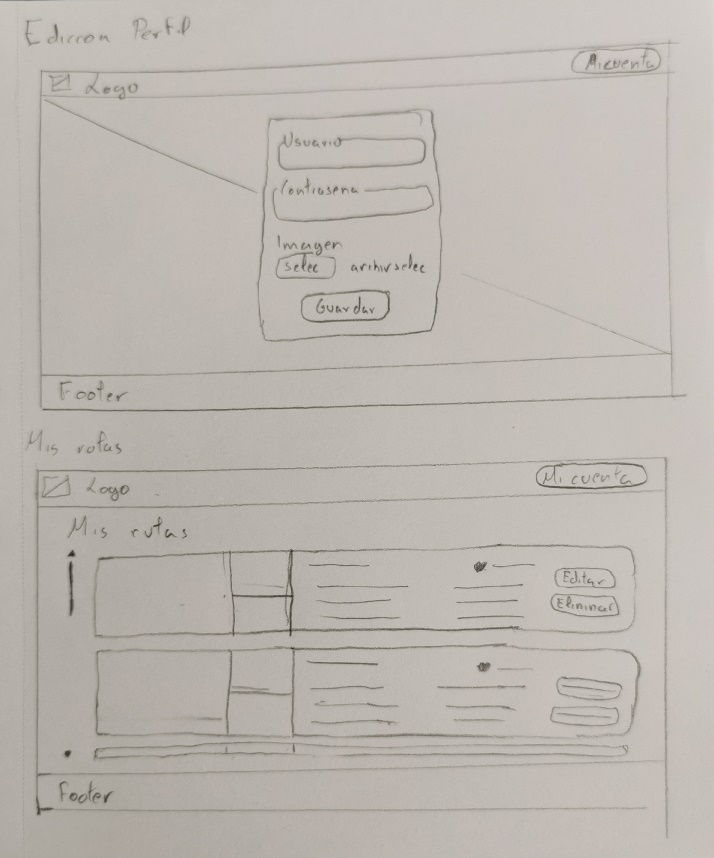 Edicion Perfil
Logo
Mi cuenta
Usuario
Contrasena
Imagen
selec archivselec
Guardar
Footer
Mis rutas
Logo
Mi cuenta
Mis rutas
Editar
Eliminar
Footer